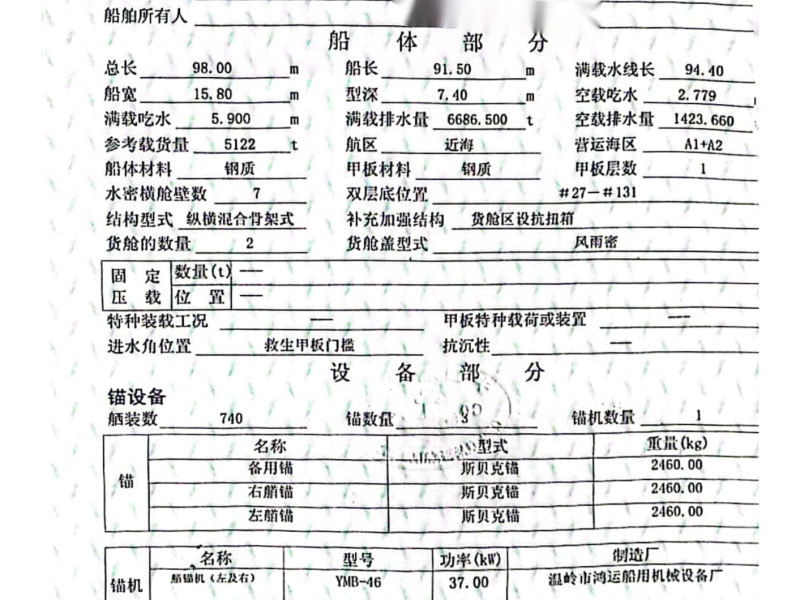 船舶所有人
船 体 部 分
总长 98.00 m 船长 91.50 m 满载水线长 94.40
船宽 15.80 m 型深 7.40 m 空载吃水 2.779
满载吃水 5.900 m 满载排水量 6686.500 t 空载排水量 1423.660
参考载货量 5122 t 航区 近海 营运海区 A1+A2
船体材料 钢质 甲板材料 钢质 甲板层数 1
水密横舱壁数 7 双层底位置 #27—#131
结构型式 纵横混合骨架式 补充加强结构 货舱区设抗扭箱
货舱的数量 2 货舱盖型式 风雨密
固定压载 数量(t) ——
位置 ——
特种装载工况 —— 甲板特种载荷或装置 ——
进水角位置 救生甲板门槛 抗沉性 ——
设 备 部 分
锚设备
舾装数 740 锚数量 3 锚机数量 1
锚 名称 型式 重量(kg)
备用锚 斯贝克锚 2460.00
右艏锚 斯贝克锚 2460.00
左艏锚 斯贝克锚 2460.00
锚机 名称 型号 功率(kW) 制造厂
艏锚机(左及右) YMB-46 37.00 温岭市鸿运船用机械设备厂